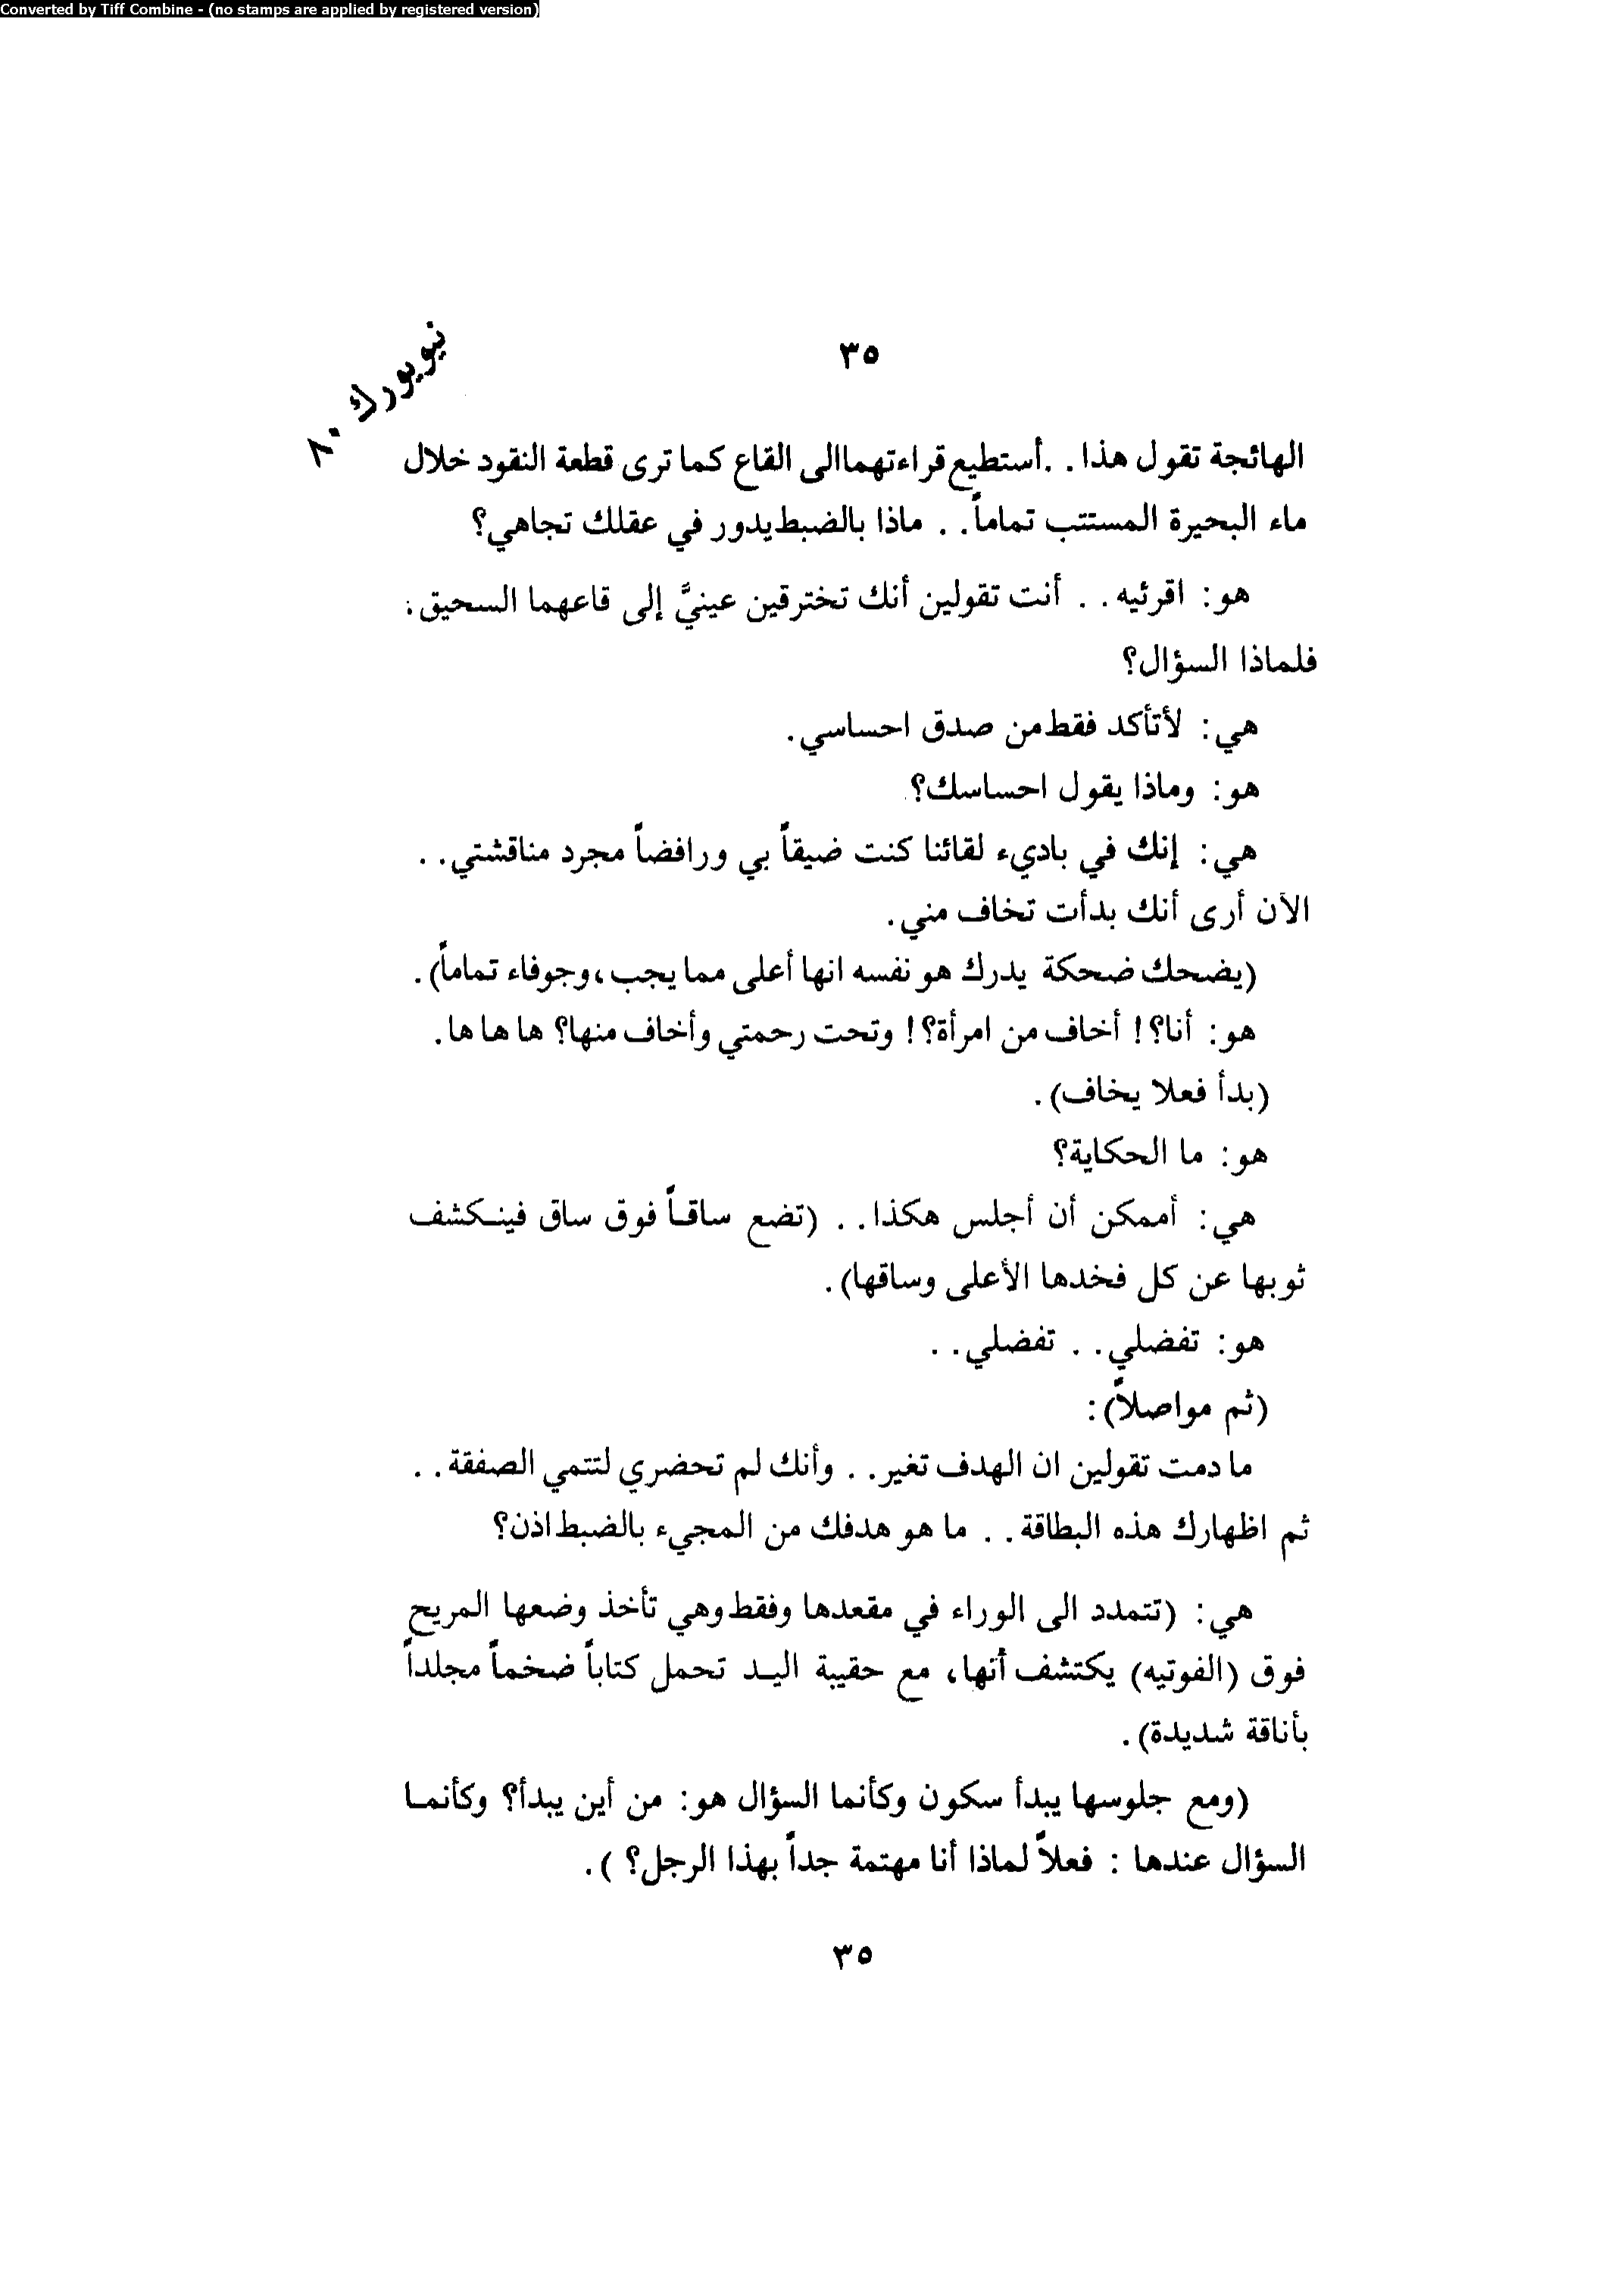 Converted by Tiff Combine - (no stamps are applied by registered version)
٣٥
نيويورك ٨٠
الهائجة تقول هذا . . أستطيع قراءتهما الى القاع كما ترى قطعة النقود خلال
ماء البحيرة المستتب تماماً . . ماذا بالضبط يدور في عقلك تجاهي؟
هو: اقرئيه . . أنت تقولين أنك تخترقين عينيَّ إلى قاعهما السحيق،
فلماذا السؤال؟
هي: لأتأكد فقط من صدق احساسي.
هو: وماذا يقول احساسك؟
هي: إنك في باديء لقائنا كنت ضيقاً بي ورافضاً مجرد مناقشتي . .
الآن أرى أنك بدأت تخاف مني.
(يضحك ضحكة يدرك هو نفسه انها أعلى مما يجب، وجوفاء تماماً).
هو: أنا؟! أخاف من امرأة؟! وتحت رحمتي وأخاف منها؟ ها ها ها.
(بدأ فعلا يخاف).
هو: ما الحكاية؟
هي: أممكن أن أجلس هكذا . . (تضع ساقاً فوق ساق فينكشف
ثوبها عن كل فخدها الأعلى وساقها).
هو: تفضلي . . تفضلي . .
(ثم مواصلاً):
ما دمت تقولين ان الهدف تغير . . وأنك لم تحضري لتتمي الصفقة . .
ثم اظهارك هذه البطاقة . . ما هو هدفك من المجيء بالضبط اذن؟
هي: (تتمدد الى الوراء في مقعدها وفقط وهي تأخذ وضعها المريح
فوق (الفوتيه) يكتشف أنها، مع حقيبة اليد تحمل كتاباً ضخماً مجلداً
بأناقة شديدة).
(ومع جلوسها يبدأ سكون وكأنما السؤال هو: من أين يبدأ؟ وكأنما
السؤال عندها : فعلاً لماذا أنا مهتمة جداً بهذا الرجل؟ ).
٣٥